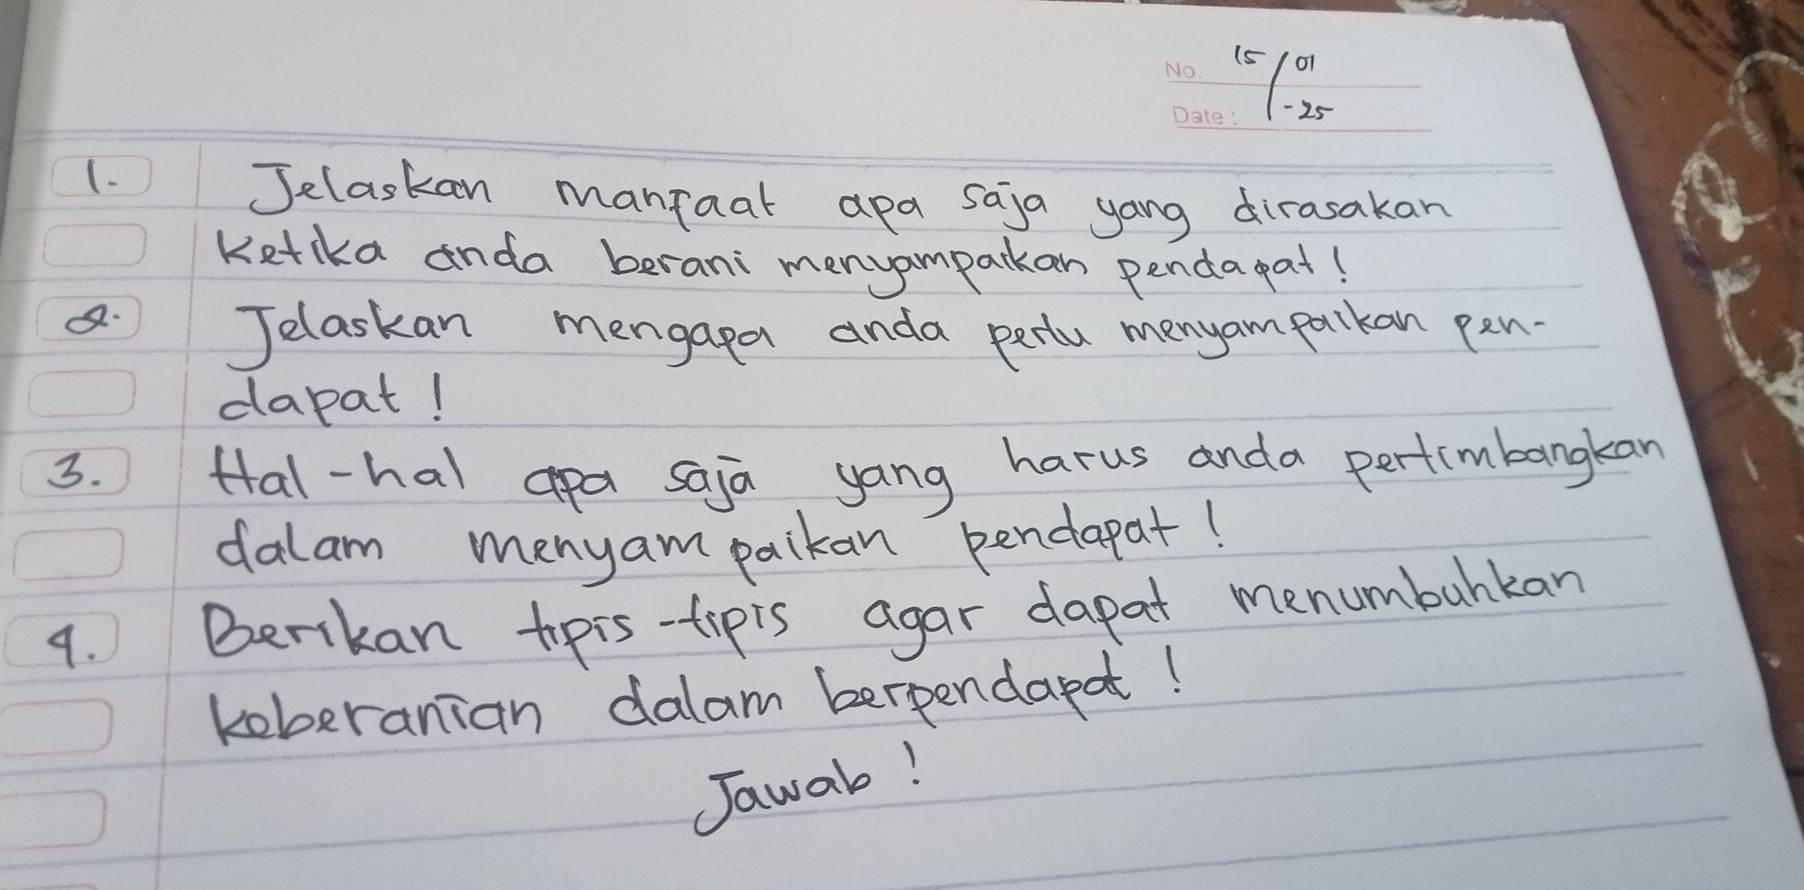 No. 15/01
Date: -25
1. Jelaskan manfaat apa saja yang dirasakan
ketika anda berani menyampaikan pendapat!
2. Jelaskan mengapa anda perlu menyampaikan pen-
dapat!
3. Hal-hal apa saja yang harus anda pertimbangkan
dalam menyampaikan pendapat!
4. Berikan tipis-tipis agar dapat menumbuhkan
keberanian dalam berpendapat!
Jawab!